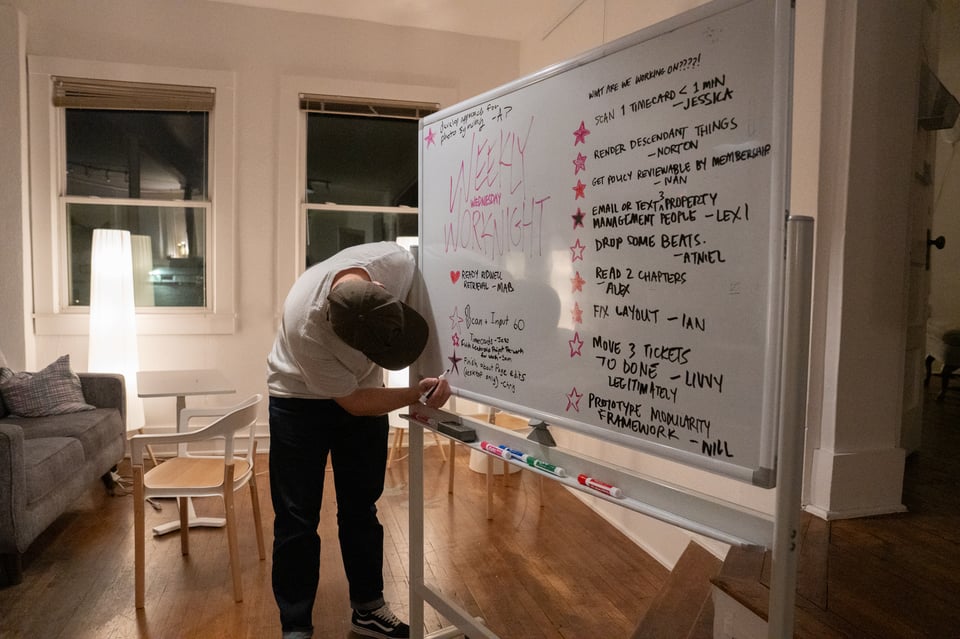 develop approach for
photo syncing -A?
WEEKLY
WEDNESDAY
WORKNIGHT
READY RIDWELL
RETRIEVAL - MAB
Scan + Input 60
Timecards -
Finish About Page Edits
(desktop only) - Chris
WHAT ARE WE WORKING ON????!
SCAN 1 TIMECARD < 1 MIN
- JESSICA
RENDER DESCENDANT THINGS
- NORTON
GET POLICY REVIEWABLE BY MEMBERSHIP
- NAN
EMAIL OR TEXT 3 PROPERTY
MANAGEMENT PEOPLE - LEXI
DROP SOME BEATS.
- ATNIEL
READ 2 CHAPTERS
- ALEX
FIX LAYOUT - IAN
MOVE 3 TICKETS
TO DONE - LIVVY
LEGITIMATELY
PROTOTYPE MODULARITY
FRAMEWORK - WILL